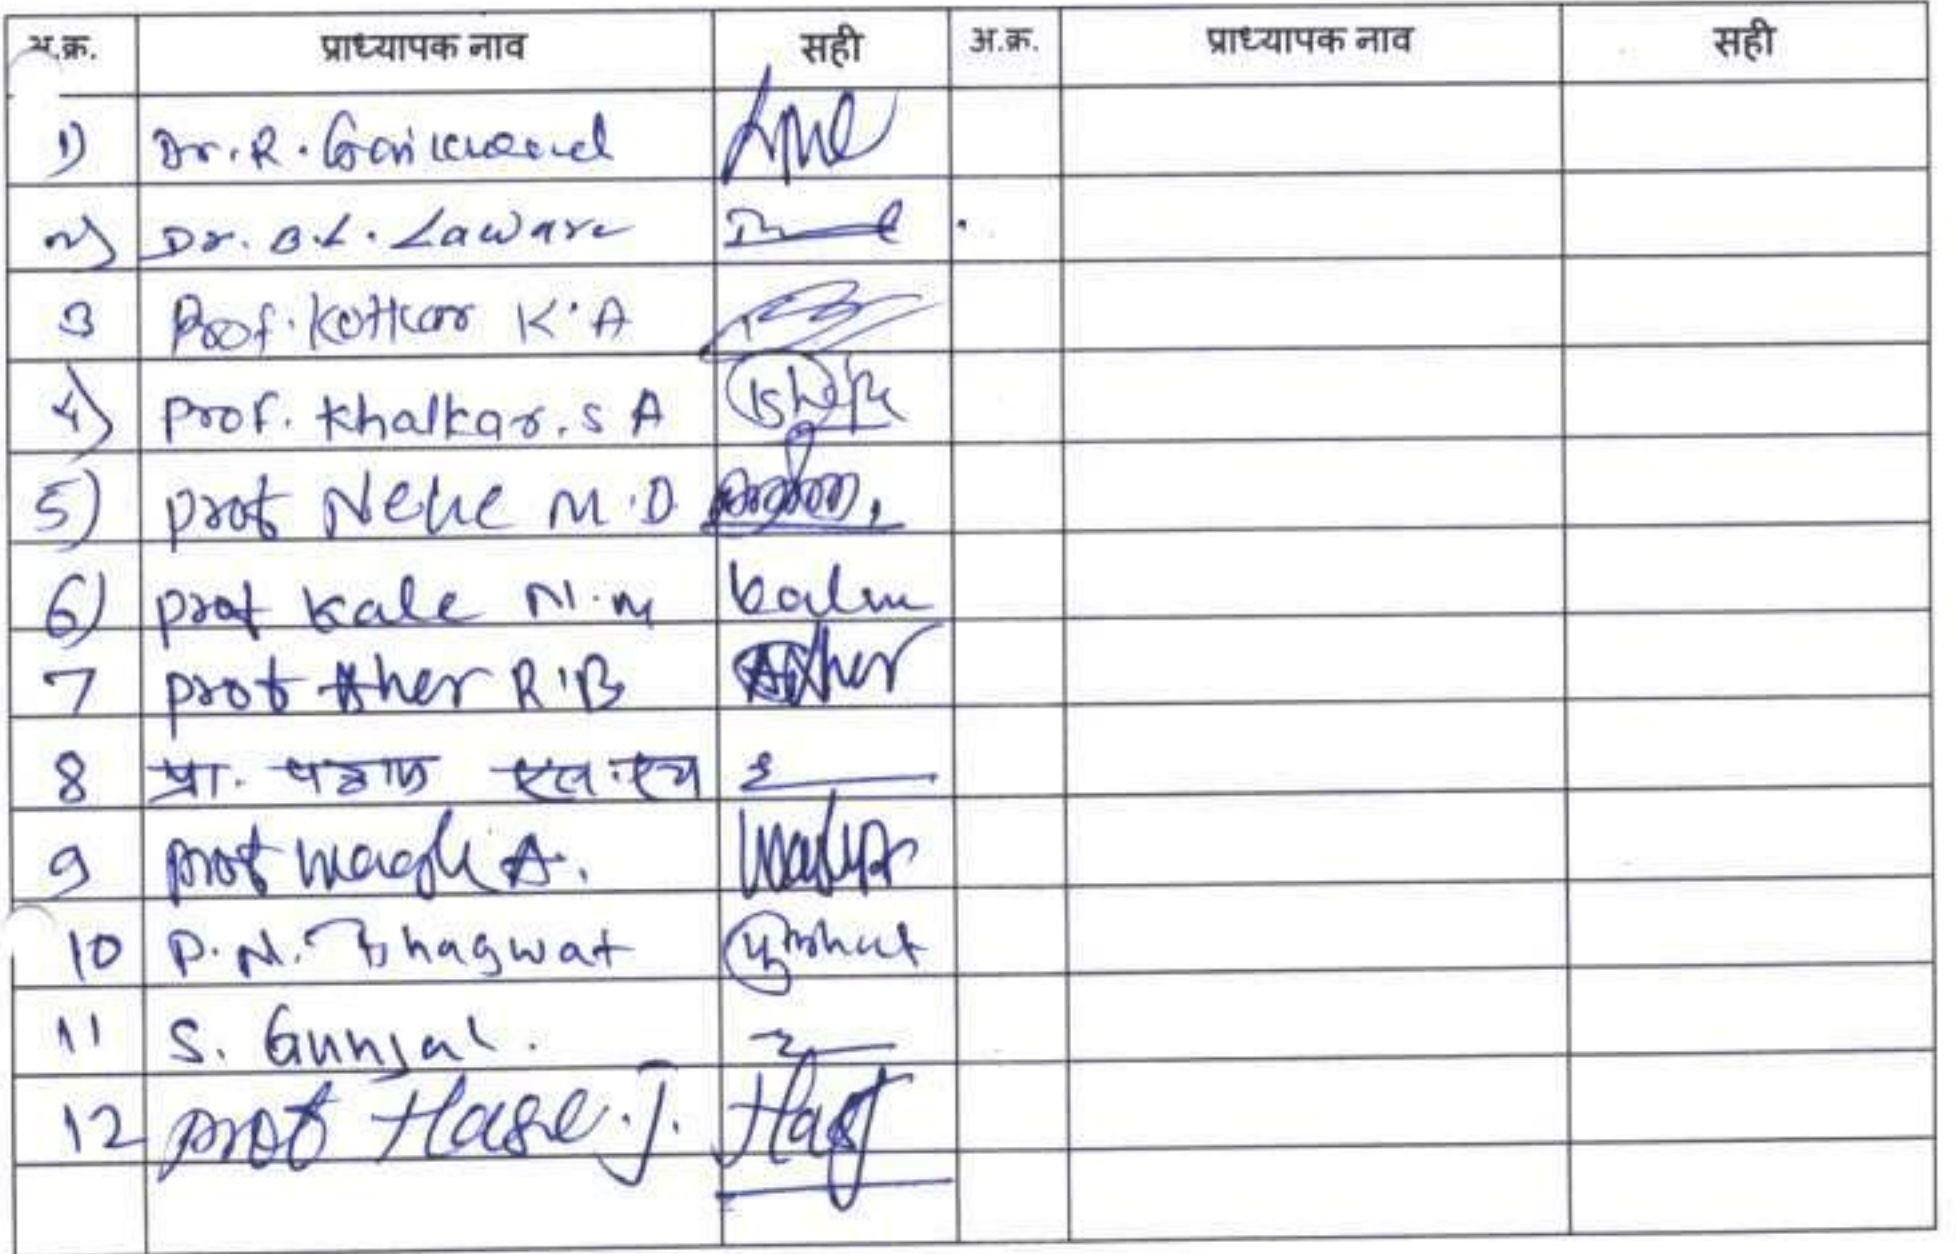 अ.क्र. प्राध्यापक नाव सही अ.क्र. प्राध्यापक नाव सही
1) Dr. R. Gaikwad
2) Dr. B.L. Laware
3 Prof. Kotkar K.A
4) Prof. Khalkar. S A
5) prof Nehe M.D.
6) prof Kale N.M Kalm
7 prof Aher R.B Aher
8 प्रा. पठाण एस.एच
9 prof Wagh A.
10 P.N. Bhagwat
11 S. Gunjal.
12 prof Hase. J.